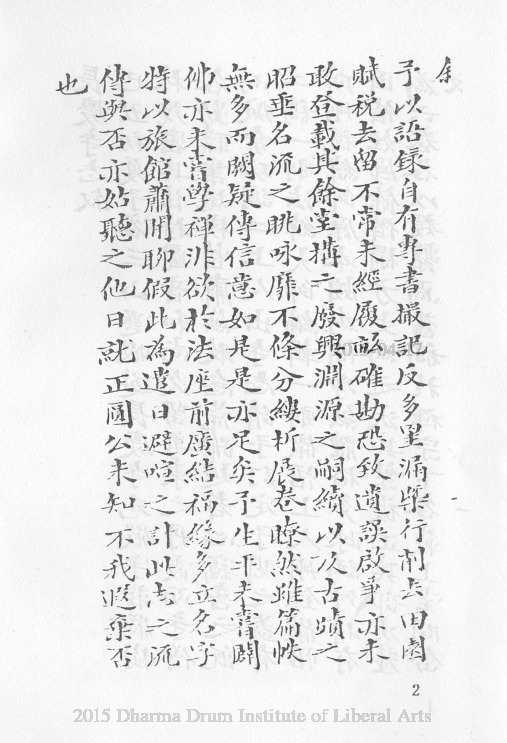 予以語錄自有專書撮記反多罣漏槩行削去田園
賦稅去留不常未經履畝確勘恐致遺誤啟爭亦未
敢登載其餘堂構之廢興淵源之嗣續以及古蹟之
昭垂名流之眺咏靡不條分縷析展卷瞭然雖篇帙
無多而闕疑傳信意如是是亦足矣予生平未嘗闢
佛亦未嘗學禪非欲於法座前廣結福緣多立名字
特以旅館蕭閒聊假此為遣日避喧之計此志之流
傳與否亦姑聽之他日就正圓公未知不我遐棄否
也
2
2015 Dharma Drum Institute of Liberal Arts